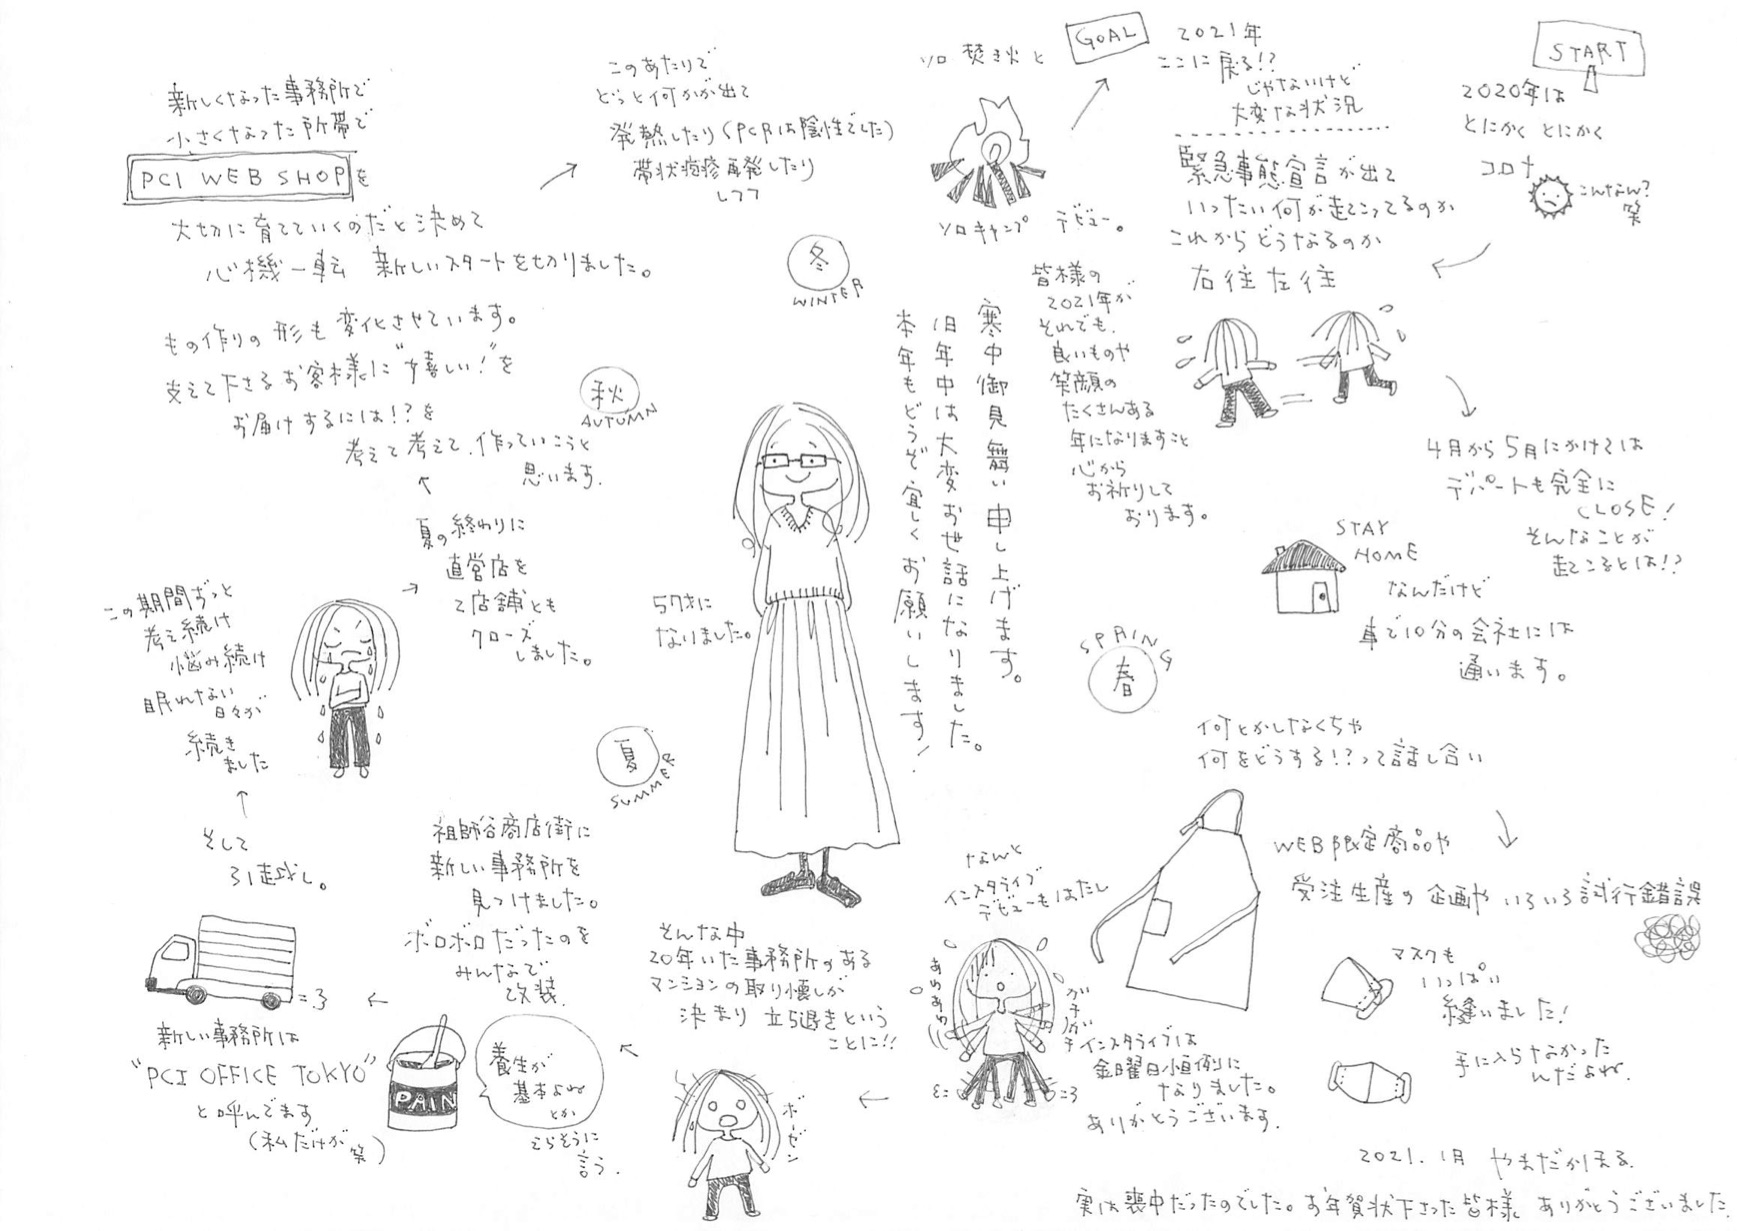 START
2020年は
とにかく とにかく
コロナ
こんなん?
笑
右往左往
緊急事態宣言が出て
いったい何が起こってるのか
これからどうなるのか
4月から5月にかけては
デパートも完全に
CLOSE!
そんなことが
起こるとは!?
STAY
HOME
なんだけど
車で10分の会社には
通います。
SPRING
春
何とかしなくちゃ
何をどうする!?って話し合い
WEB限定商品や
受注生産の企画や いろいろ試行錯誤
マスクも
いっぱい
縫いました!
手に入らなかった
んだよね.
なんと
インスタライブ
デビューもはたし
あわあわ
ガチガチ
インスタライブは
金曜日恒例に
なりました。
ありがとうございます.
そんな中
20年いた事務所のある
マンションの取り壊しが
決まり 立ち退きという
ことに!!
ボーゼン
夏
SUMMER
祖師谷商店街に
新しい事務所を
見つけました。
ボロボロだったのを
みんなで
改装.
PAIN
養生が
基本よね
とか
えらそうに
言う.
新しい事務所は
"PCI OFFICE TOKYO"
と呼んでます
(私だけが 笑)
そして
引越し。
この期間ずっと
考え続け
悩み続け
眠れない
日々が
続き
ました
夏の終わりに
直営店を
2店舗とも
クローズ
しました。
秋
AUTUMN
新しくなった事務所で
小さくなった所帯で
PCI WEB SHOPを
大切に育てていくのだと決めて
心機一転 新しいスタートを切りました。
もの作りの形も変化させています。
支えて下さるお客様に"嬉しい!"を
お届けするには!?を
考えて考えて.作っていこうと
思います.
このあたりで
どっと何かが出て
発熱したり(PCRは陰性でした)
帯状疱疹再発したり
しつつ
冬
WINTER
ソロ焚き火と
ソロキャンプ デビュー。
GOAL
2021年
ここに戻る!?
じゃないけど
大変な状況
皆様の
2021年が
それでも.
良いものや
笑顔の
たくさんある
年になりますこと
心から
お祈りして
おります。
寒中御見舞い申し上げます。
旧年中は大変お世話になりました。
本年もどうぞ宜しくお願いします!
57才に
なりました。
2021.1月 やまだかほる.
実は喪中だったのでした。お年賀状下さった皆様. ありがとうございました.